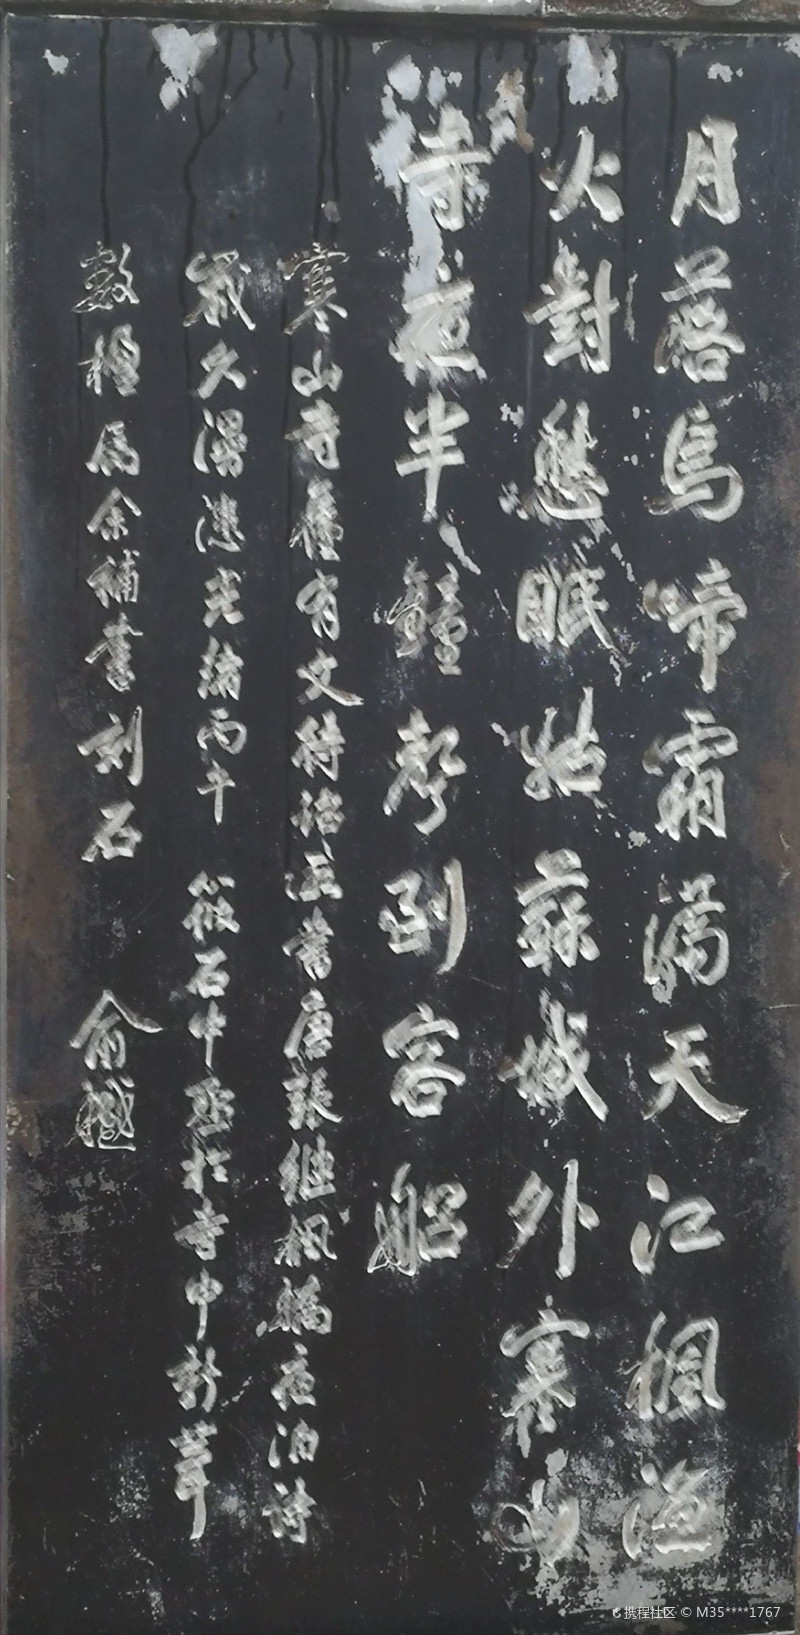 月落烏啼霜滿天江楓漁
火對愁眠姑蘇城外寒山
寺夜半鐘聲到客船
寒山寺舊有文待詔所書唐張繼楓橋夜泊詩
歲久漫漶光緒丙午 筱石中丞於寺中新葺
數楹屬余補書刻石 俞樾
携程社区 © M35****1767